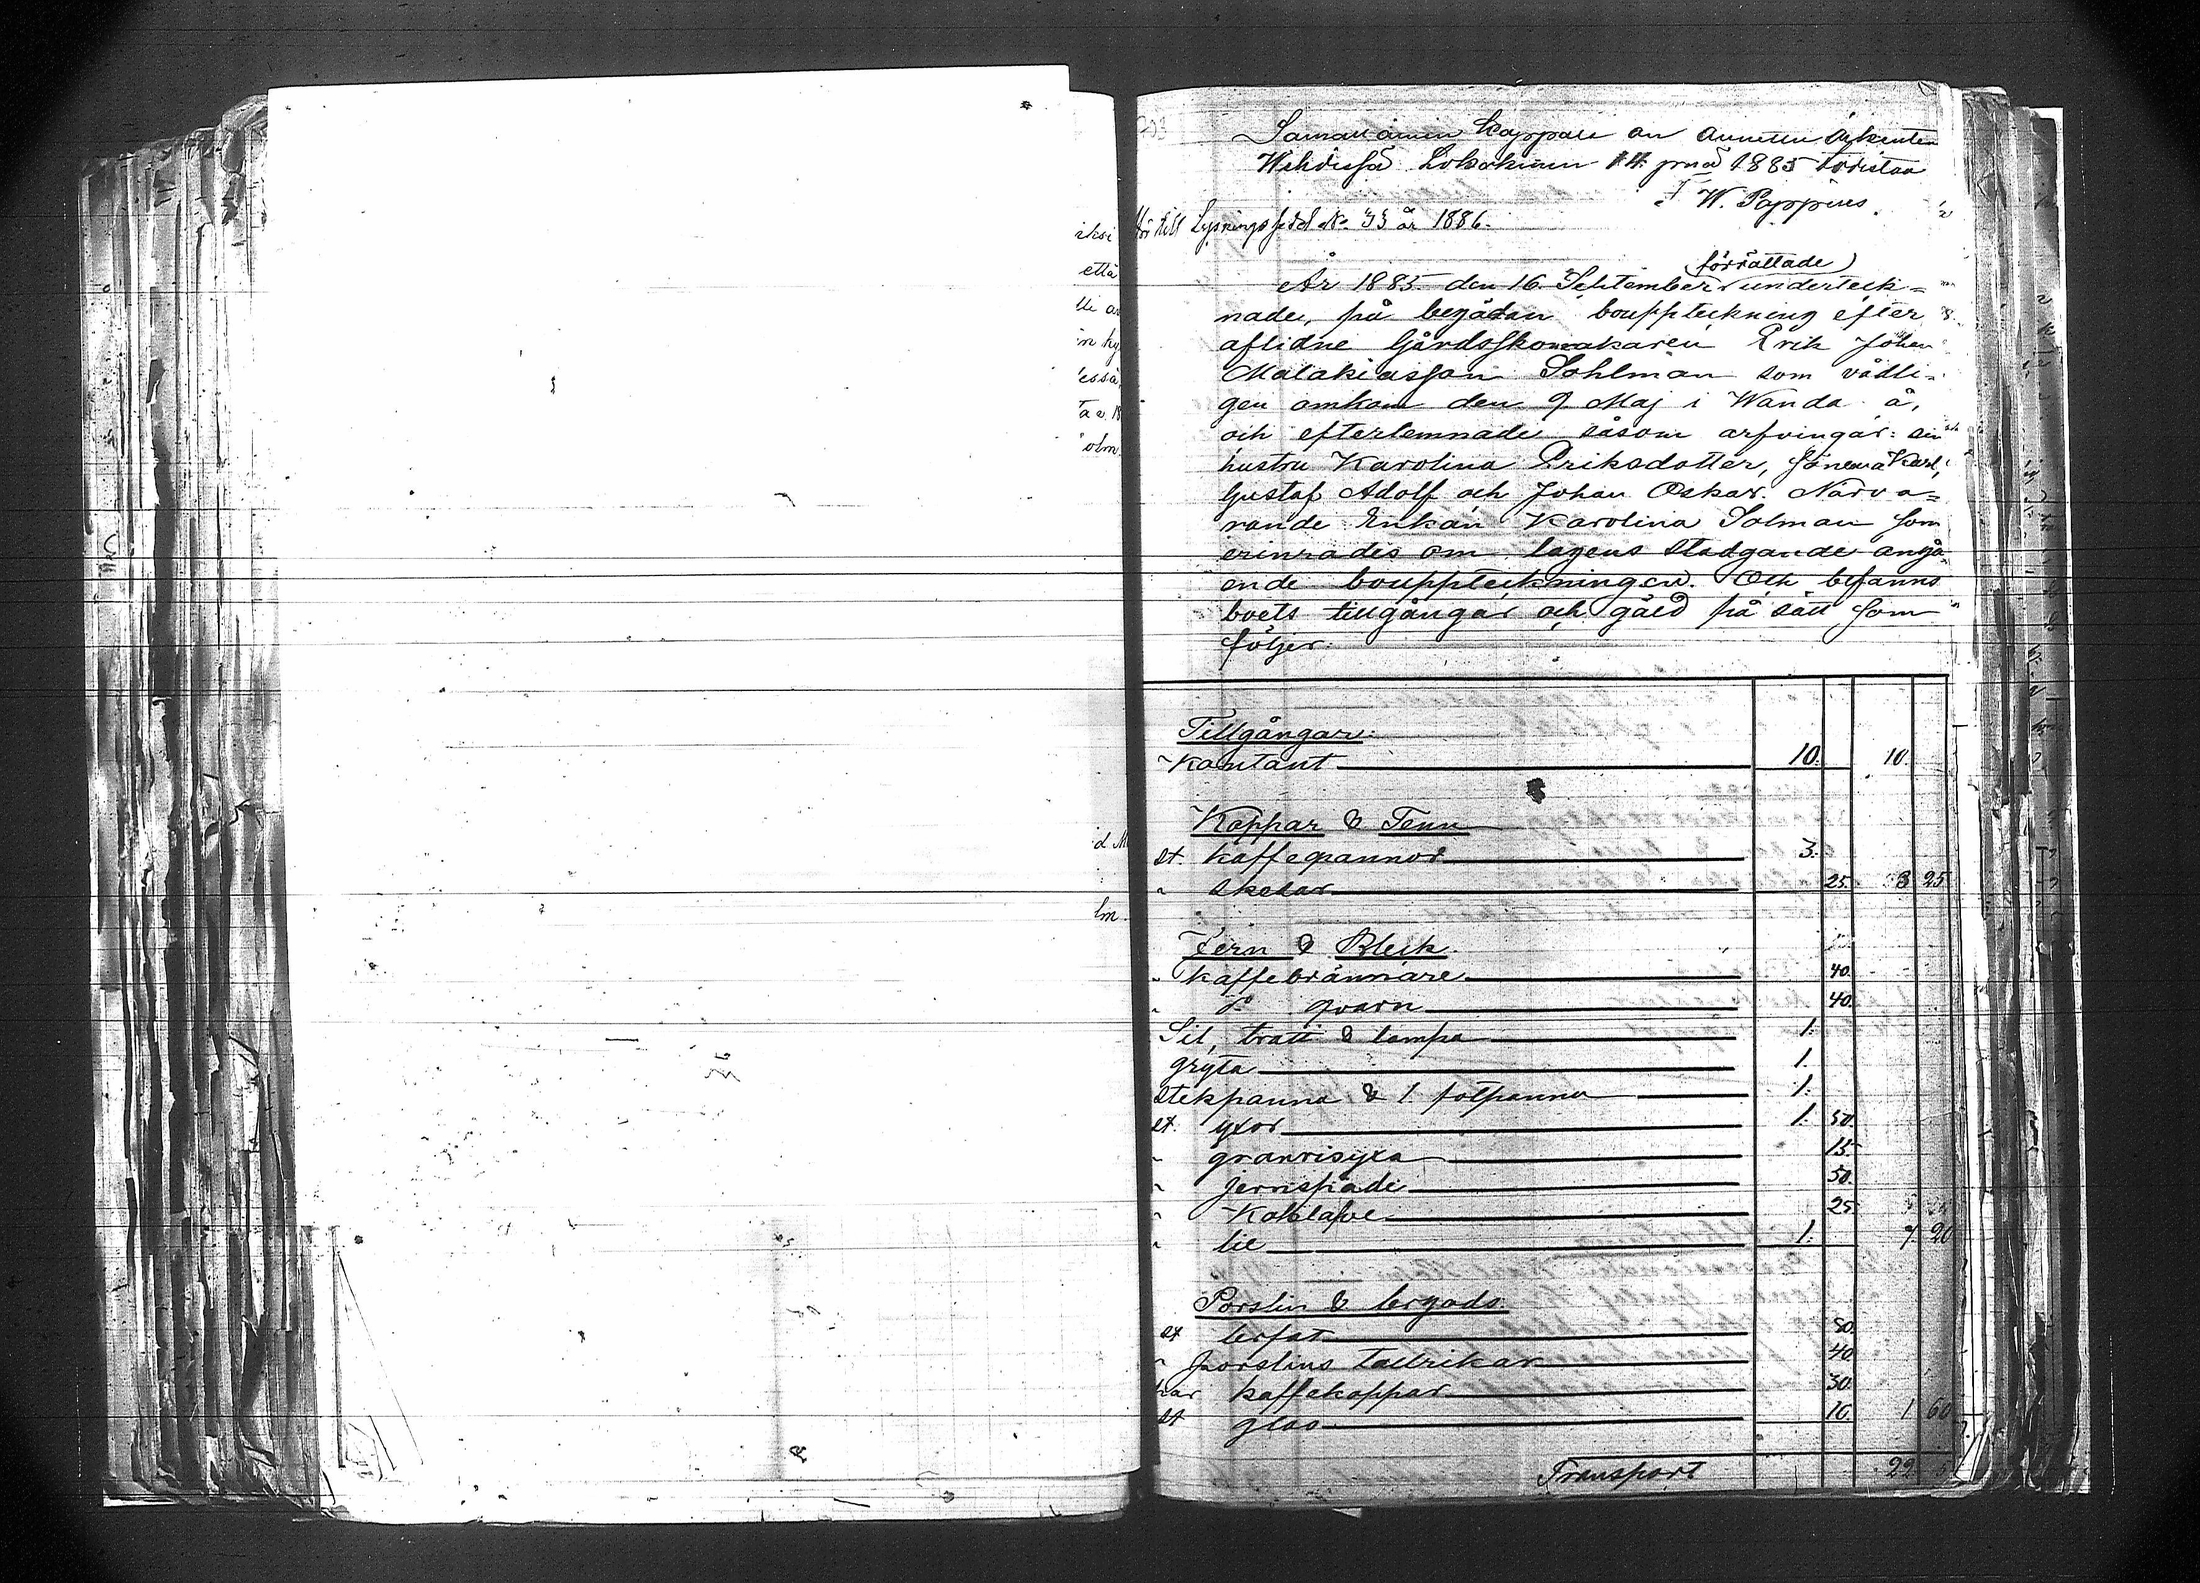 203
Samanlainen kappale on annettu
Wihdissä Lokakuun 14 pnä 1885 todistaa
W. Pappius.
Hör till Lysningssedel No. 33 år 1886.
förrättade
År 1885 den 16 September underteck-
nade, på begäran bouppteckning efter
aflidne Gårdsskomakaren Erik Johan
Malakiasson Sohlman som vådli-
gen omkom den 9 Maj i Wanda å,
och efterlemnade såsom arfvingar: sin
hustru Karolina Eriksdotter, sönerna Karl,
Gustaf Adolf och Johan Oskar. Närva-
rande Enkan Karolina Solman som
erinrades om lagens stadgande angå-
ende bouppteckningen. Och befanns
boets tillgångar och gäld på sätt som
följer.
Tillgångar:
Kontant 10. 10.
Koppar & Tenn
st. kaffepannor 3.
" skedar 25. 3 25
Jern & Bleck
" kaffebrännare 40.
" do qvarn 40.
Sil, tratt & lampa 1.
gryta 1.
stekpanna & 1 1.
st. yxor 1. 50.
" granrisyxa 15.
" jernspade 50.
" 25.
" lie 1. 7. 20
Porslin & lergods
st lerfat 80.
" porslins tallrikar 40.
par kaffekoppar 30.
st glas 10. 1 60
Transport 22
eksi
että
lle
in
essä
olm
d. M
lm.